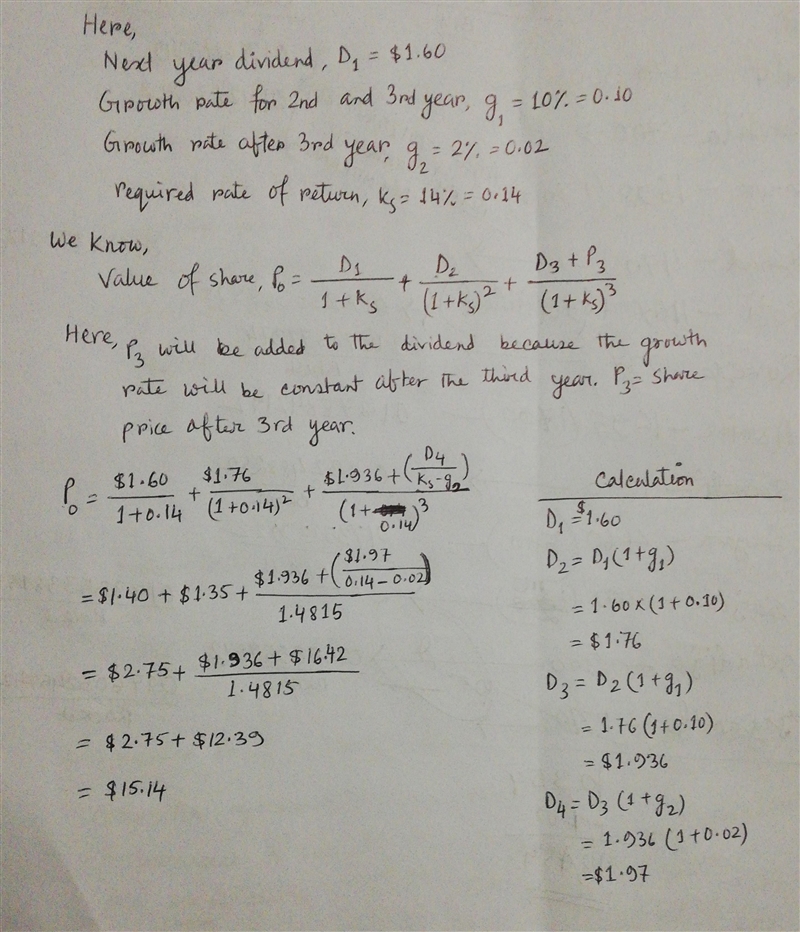 Here,
Next year dividend, D₁ = $1.60
Growth rate for 2nd and 3rd year, g₁ = 10% = 0.10
Growth rate after 3rd year, g₂ = 2% = 0.02
required rate of return, Ks = 14% = 0.14
We Know,
Value of share, P₀ = D₁/(1+Ks) + D₂/(1+Ks)² + (D₃ + P₃)/(1+Ks)³
Here, P₃ will be added to the dividend because the growth
rate will be constant after the third year. P₃ = share
price after 3rd year.
P₀ = $1.60/(1+0.14) + $1.76/(1+0.14)² + ($1.936 + (D₄/(Ks-g₂)))/(1+0.14)³
= $1.40 + $1.35 + ($1.936 + ($1.97/(0.14-0.02)))/1.4815
= $2.75 + ($1.936 + $16.42)/1.4815
= $2.75 + $12.39
= $15.14
Calculation
D₁ = $1.60
D₂ = D₁(1+g₁)
= 1.60×(1+0.10)
= $1.76
D₃ = D₂(1+g₁)
= 1.76(1+0.10)
= $1.936
D₄ = D₃(1+g₂)
= 1.936(1+0.02)
= $1.97